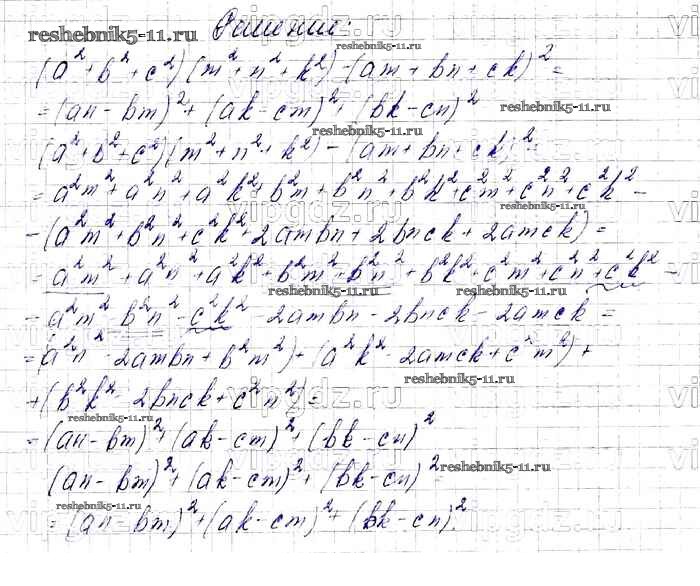 Решение:
(a²+b²+c²)(m²+n²+k²)-(am+bn+ck)²=
=(an-bm)²+(ak-cm)²+(bk-cn)²
(a²+b²+c²)(m²+n²+k²)-(am+bn+ck)²=
=a²m²+a²n²+a²k²+b²m²+b²n²+b²k²+c²m²+c²n²+c²k²-
-(a²m²+b²n²+c²k²+2ambn+2bnck+2amck)=
=a²m²+a²n²+a²k²+b²m²+b²n²+b²k²+c²m²+c²n²+c²k²-
-a²m²-b²n²-c²k²-2ambn-2bnck-2amck=
=(a²n²-2ambn+b²m²)+(a²k²-2amck+c²m²)+
+(b²k²-2bnck+c²n²)=
=(an-bm)²+(ak-cm)²+(bk-cn)²
(an-bm)²+(ak-cm)²+(bk-cn)²=
=(an-bm)²+(ak-cm)²+(bk-cn)².
reshebnik5-11.ru
reshebnik5-11.ru
reshebnik5-11.ru
reshebnik5-11.ru
reshebnik5-11.ru
reshebnik5-11.ru
reshebnik5-11.ru
reshebnik5-11.ru
reshebnik5-11.ru
reshebnik5-11.ru
reshebnik5-11.ru
reshebnik5-11.ru
vipgdz.ru
vipgdz.ru
vipgdz.ru
vipgdz.ru